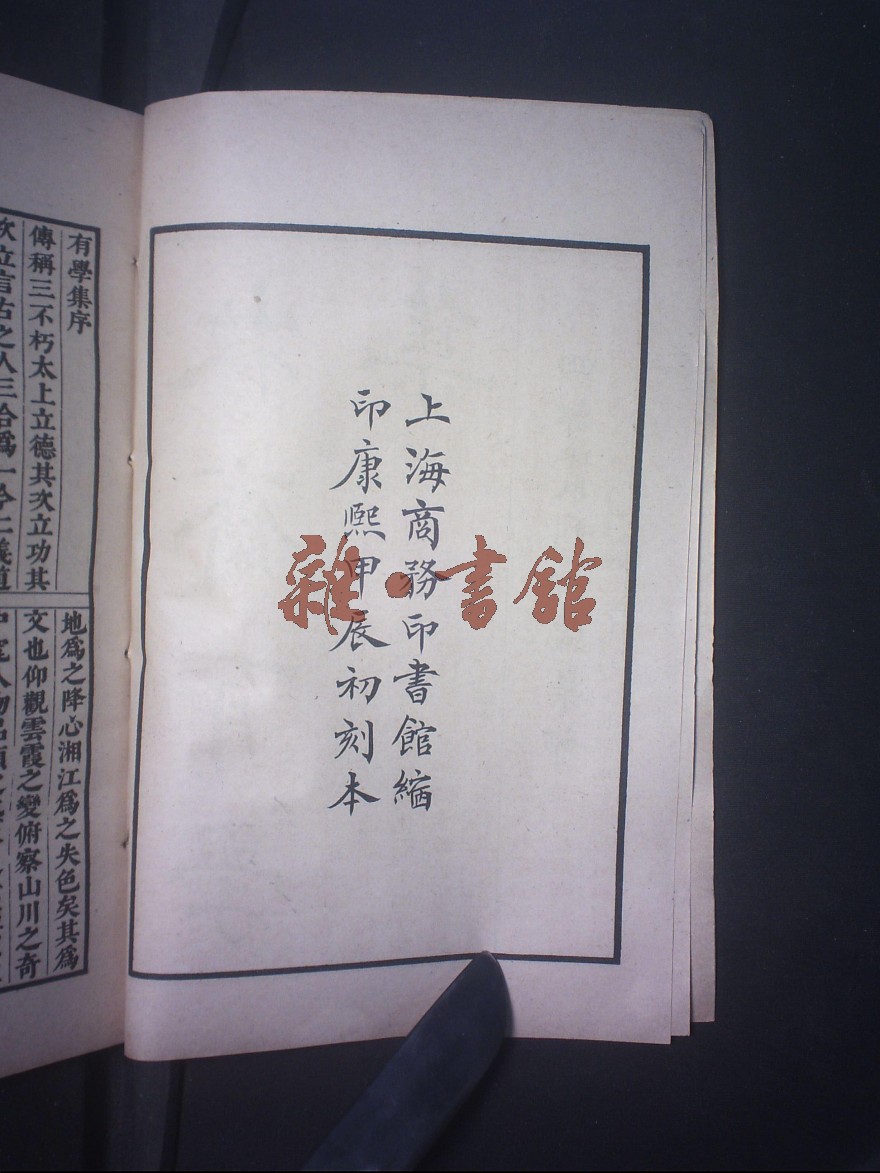 上海商務印書館縮
印康熙甲辰初刻本
雜·書館
有學集序
傳稱三不朽太上立德其次立功其
次立言古之人三合爲一今二義道
地爲之降心湘江爲之失色矣其爲
文也仰觀雲霞之變俯察山川之奇